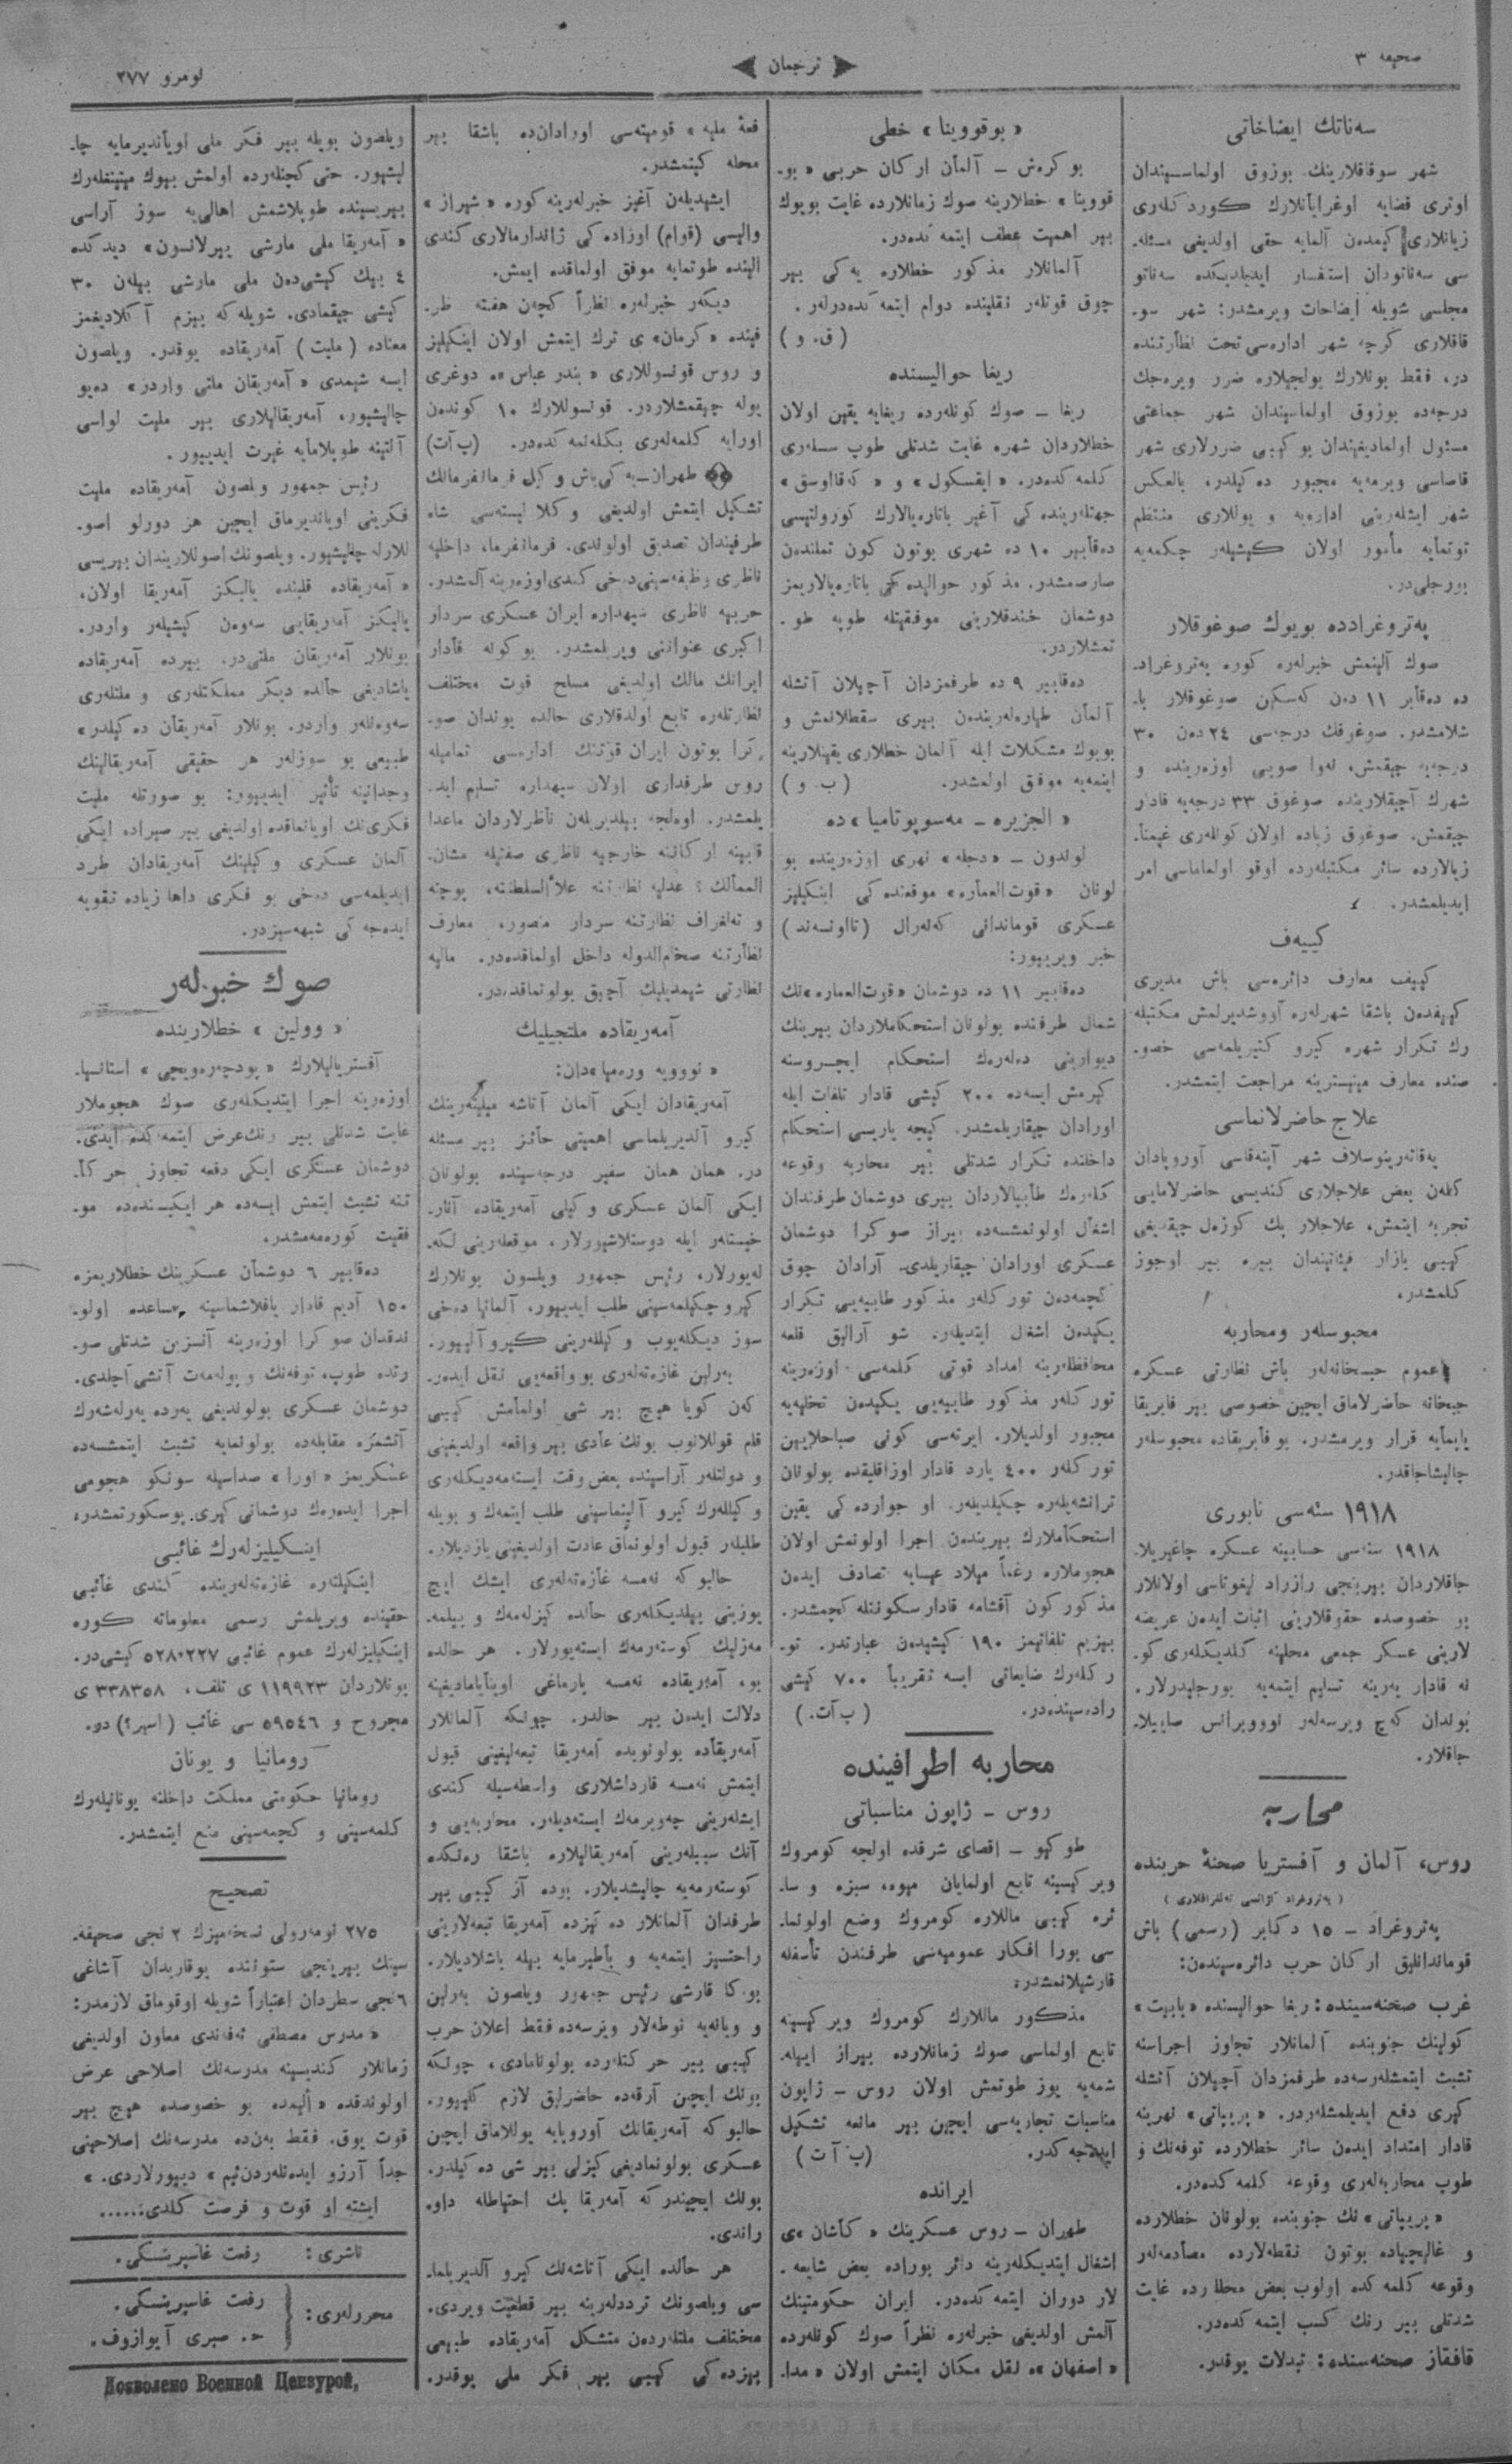 صحیفه ۳
ترجمان
نومرو ۲۷۷
سەناتك ایضاخاتی
شهر سوقاقلارینك بوزوق اولماسیندان
اوتری قضایه اوغرایانلارك كوردكلەری
زیانلاری كیمدەن آلمایه حقی اولدیغی مسئله‌
سی سەناتودان استفسار ایدیلدیكده سەناتو
مجلسی شویله ایضاحات ویرمشدر: شهر سو‌
قاقلاری كرچه شهر ادارەسی تحت نظارتنده
در، فقط بونلارك یولجیلاره ضرر ویرەجك
درجەده بوزوق اولماسیندان شهر جماعتی
مسئول اولمادیغندان بو كیبی ضررلاری شهر
قاصاسی ویرمەیه مجبور دەكیلدر، بالعكس
شهر ایشلەرینی ادارەیه و یوللاری منتظم
توتمایه مأمور اولان كیشیلەر چكمەیه
بورجلی‌در.
پەتروغراددە بویوك صوغوقلار
صوك آلینمش خبرلەره كوره پەتروغراد‌
ده دەقابر ۱۱ دەن كەسكن صوغوقلار با‌
شلامشدر. صوغوقك درجەسی ۲۴ دەن ۳۰
درجەیه چیقمش، نەوا صویی اوزەرینده و
شهرك آچیقلارینده صوغوق ۳۳ درجەیه قادار
چیقمش. صوغوق زیاده اولان كونلەری غیمنا‌
زیالارده سائر مكتبلەرده اوقو اولماماسی امر
ایدیلمشدر.
كییەف
كییف معارف دائرەسی باش مدیری
كییفدەن باشقا شهرلەره آووشدیرلمش مكتبلە‌
رك تكرار شهره كیرو كتیریلمەسی خصو‌
صنده معارف مینیسترینه مراجعت ایتمشدر.
علاج حاضرلانماسی
یەقاتەرینوسلاف شهر آپتەقاسی آوروپادان
كلەن بعض علاجلاری كندیسی حاضرلامایی
تجربه ایتمش، علاجلار پك كوزەل چیقدیغی
كیبی بازار فیئاتیندان بیره بیر اوجوز
كلمشدر.
محبوسلەر ومحاربه
عموم حبسخانەلەر باش نظارتی عسكره
جبخانه حاضرلاماق ایچین خصوصی بیر فابریقا
یاپمایه قرار ویرمشدر. بو فابریقاده محبوسلەر
چالیشاجاقدر.
۱۹۱۸ سنەسی نابوری
۱۹۱۸ سنەسی حسابینه عسكره چاغیریلا‌
جاقلاردان بیرنجی رازراد لیغوتاسی اولانلار
بو خصوصده حقوقلارینی اثبات ایدەن عریضه
لارینی عسكر جمعی محلینه كلدیكلەری كو‌
نه قادار یەرینه تسلیم ایتمەیه بورجلیدرلار.
بوندان كەچ ویرسەلەر نووویرانس صاییلا‌
جاقلار.
محاربه
روس، آلمان و آفستریا صحنهٔ حربنده
( پەتروغراد آژانسی تەلغرافلاری )
پەتروغراد — ۱۵ دكابر (رسمی) باش
قوماندانلیق اركان حرب دائرەسیندەن:
غرب صحنەسینده: ریغا حوالیسنده «بابیت»
كولینك جنوبنده آلمانلار تجاوز اجراسنه
تشبث ایتمشلەرسەده طرفمزدان آچیلان آتشله
كیری دفع ایدیلمشلەردر. «پریپاتی» نهرینه
قادار امتداد ایدەن سائر خطلارده توفەنك و
طوپ محاربەلەری وقوعه كلمەكدەدر.
«پریپاتی» نك جنوبنده بولونان خطلارده
و غالیچیاده بوتون نقطەلارده مصادمەلەر
وقوعه كلمەكده اولوب بعض محللارده غایت
شدتلی بیر رنك كسب ایتمەكدەدر.
قافقاز صحنەسنده: تبدلات یوقدر.
« بوقووینا » خطی
بوكرەش — آلمان اركان حربی « بو‌
قووینا » خطلارینه صوك زمانلارده غایت بویوك
بیر اهمیت عطف ایتمەكدەدر.
آلمانلار مذكور خطلاره یەكی بیر
چوق قوتلەر نقلینده دوام ایتمەكدەدرلەر.
(ق. و)
ریغا حوالیسنده
ریغا — صوك كونلەرده ریغایه یقین اولان
خطلاردان شهره غایت شدتلی طوپ سسلەری
كلمەكدەدر. « ایقسكول » و « كەقااوسق »
جهتلەریندەكی آغیر باتارەیالارك كورولتیسی
دەقابر ۱۰ ده شهری بوتون كون تملندەن
صارصمشدر. مذكور حوالیدەكی باتارەیالاریمز
دوشمان خندقلارینی موفقیتله طوپه طو‌
تمشلاردر.
دەقابیر ۹ ده طرفمزدان آچیلان آتشله
آلمان طیارەلەریندەن بیری سقطلانمش و
بویوك مشكلات ایله آلمان خطلاری یقینلارینه
اینمەیه موفق اولمشدر. (ب. و)
« الجزیره — مەسوپوتامیا » ده
لوندون — « دجله » نهری اوزەرینده بو
لونان « قوت العماره » موقعندەكی اینكیلیز
عسكری قوماندانی كەنەرال (تااونسەند)
خبر ویرییور:
دەقابیر ۱۱ ده دوشمان « قوت‌العماره » نك
شمال طرفنده بولونان استحكاملاردان بیرینك
دیوارینی دەلەرەك استحكام ایچروسنه
كیرمش ایسەده ۲۰۰ كیشی قادار تلفات ایله
اورادان چیقاریلمشدر. كیجه یاریسی استحكام
داخلنده تكرار شدتلی بیر محاربه وقوعه
كلەرەك طابیالاردان بیری دوشمان طرفندان
اشغال اولونمشسەده بیراز صوكرا دوشمان
عسكری اورادان چیقاریلدی. آرادان چوق
كچمەدەن توركلەر مذكور طابیەیی تكرار
یكیدەن اشغال ایتدیلەر. شو آرالیق قلعه
محافظلەرینه امداد قوتی كلمەسی اوزەرینه
توركلەر مذكور طابیەیی یكیدەن تخلیەیه
مجبور اولدیلار. ایرتەسی كونی صباحلایین
توركلەر ۴۰۰ یارد قادار اوزاقلیقده بولونان
ترانشەیلەره چكیلدیلەر. او جواردەكی یقین
استحكاملارك بیریندەن اجرا اولونمش اولان
هجوملاره رغماً میلاد عیسایه تصادف ایدەن
مذكور كون آقشامه قادار سكونتله كچمشدر.
بیزیم تلفاتیمز ۱۹۰ كیشیدەن عبارتدر. تو‌
ركلەرك ضایعاتی ایسه تقریباً ۷۰۰ كیشی
رادەسیندەدر. (پ آت.)
محاربه اطرافینده
روس — ژاپون مناسباتی
طوكیو — اقصای شرقده اولجه كومروك
ویركیسینه تابع اولمایان میوه، سبزه و سا‌
ئره كیبی ماللاره كومروك وضع اولونما‌
سی بورا افكار عمومیەسی طرفندن تأسفله
قارشیلانمشدر:
مذكور ماللارك كومروك ویركیسینه
تابع اولماسی صوك زمانلارده بیراز ایپلە‌
شمەیه یوز طوتمش اولان روس — ژاپون
مناسبات تجاریەسی ایچین بیر مانعه تشكیل
ایدەجەكدر. (پ آت)
ایرانده
طهران — روس عسكرینك « كاشان » ی
اشغال ایتدیكلەرینه دائر بوراده بعض شایعه‌
لار دوران ایتمەكدەدر. ایران حكومتینك
آلمش اولدیغی خبرلەره نظراً صوك كونلەرده
« اصفهان » نقل مكان ایتمش اولان « مدا‌
فعهٔ ملیه » قومیتەسی اورادان‌ده باشقا بیر
محله كیتمشدر.
ایشیدیلەن آغیز خبرلەرینه كوره « شیراز »
والیسی (قوام) اوزادەكی ژاندارمالاری كندی
الینده طوتمایه موفق اولماقده ایمش.
دیكەر خبرلەره نظراً كچەن هفته ظر‌
فینده « كرمان » ی ترك ایتمش اولان اینكیلیز
و روس قونسوللاری « بندر عباس » ه دوغری
یوله چیقمشلاردر. قونسوللارك ۱۰ كوندەن
اورایه كلمەلەری بكلەنمەكدەدر. (پ آت)
طهران — یەكی باش وكیل فرمانفرمانك
تشكیل ایتمش اولدیغی وكلا لیستەسی شاه
طرفیندان تصدیق اولوندی. فرمانفرما، داخلیه
ناظری وظیفەسینی دخی كندی اوزەرینه آلمشدر.
حربیه ناظری سپهداره ایران عسكری سردار
اكبری عنوانینی ویریلمشدر. بو كونه قادار
ایرانك مالك اولدیغی مسلح قوت مختلف
نظارتلەره تابع اولدقلاری حالده بوندان صو‌
ڭرا بوتون ایران قوتینك ادارەسی تمامیله
روس طرفداری اولان سپهداره تسلیم اید‌
یلمشدر. اولجه بیلدیریلەن ناظرلاردان ماعدا
قابینه اركانینه خارجیه ناظری صفتیله مشان‌
الممالك؛ عدلیه نظارتینه علاءالسلطنه، پوچته
و تەلغراف نظارتنه سردار منصور، معارف
نظارتنه صخام‌الدوله داخل اولماقدەدر. مالیه
نظارتی شیمدیلیك آچیق بولونماقدەدر.
آمەریقاده ملتجیلیك
« نوویه ورەمیا » دان:
آمەریقادان ایكی آلمان آتاشه میلیتەرینك
كیرو آلدیریلماسی اهمیتی حائز بیر مسئله
در. همان همان سفیر درجەسینده بولونان
ایكی آلمان عسكری وكیلی آمەریقاده آنار‌
خیستلەر ایله دوستلاشیورلار، موقعلەرینی لكە‌
لەیورلار، رئیس جمهور ویلسون بونلارك
كیرو چكیلمەسینی طلب ایدییور، آلمانیا دەخی
سوز دیكلەیوب وكیللەرینی كیرو آلییور.
بەرلین غازەتەلەری بو واقعەیی نقل ایدەر‌
كەن كویا هیچ بیر شی اولمامش كیبی
قلم قوللانوب بونك عادی بیر واقعه اولدیغینی
و دولتلەر آراسینده بعض وقت ایستەمەدیكلەری
وكیللەرك كیرو آلینماسینی طلب ایتمەك و بویله
طلبلەر قبول اولونماق عادت اولدیغینی یازدیلار.
حالبوكه نەمسه غازەتەلەری ایشك ایچ
یوزینی بیلدیكلەری حالده كیزلەمەك و بیلمە‌
مەزلیك كوستەرمەك ایستەیورلار. هر حالده
بو، آمەریقاده نەمسه یارماغی اوینایامادیغینه
دلالت ایدەن بیر حالدر. چونكه آلمانلار
آمەریقاده بولونوبده آمەریقا تبعەلیغینی قبول
ایتمش نەمسه قارداشلاری واسطەسیله كندی
ایشلەرینی چەویرمەك ایستەدیلەر. محاربەیی و
آنك سببلەرینی آمەریقالیلاره باشقا رەنكده
كوستەرمەیه چالیشدیلار. بوده آز كیبی بیر
طرفدان آلمانلار دەڭیزده آمەریقا تبعەلارینی
راحتسیز ایتمەیه و باطیرمایه بیله باشلادیلار.
بوكا قارشی رئیس جمهور ویلصون بەرلین
و ویانەیه نوطەلار ویرسەده فقط اعلان حرب
كیبی بیر حركتلەرده بولونامادی، چونكه
بونك ایچین آرقەده حاضرلیق لازم كلییور.
حالبوكه آمەریقانك آوروپایه یوللاماق ایچین
عسكری بولونمادیغی كیزلی بیر شی دەكیلدر.
بونك ایچیندركه آمەریقا پك احتیاطله داو‌
راندی.
هر حالده ایكی آتاشەنك كیرو آلدیریلما‌
سی ویلصونك ترددلەرینه بیر قطعیت ویردی.
مختلف ملتلەردەن متشكل آمەریقاده طبیعی
بیزدەكی كیبی بیر فكر ملی یوقدر.
ویلصون بویله بیر فكر ملی اویاندیرمایه چا‌
لیشیور. حتی كچنلەرده اولمش بیوك میتینغلەرك
بیریسینده طوپلاشمش اهالی‌یه سوز آراسی
« آمەریقا ملی مارشی بیرلانسون » دیدكده
٤ بیك كیشی‌دەن ملی مارشی بیلەن ۳۰
كیشی چیقمادی. شویله كه بیزم آكلادیغمز
معناده (ملیت) آمەریقاده یوقدر. ویلصون
ایسه شیمدی « آمەریقان ملتی واردر » دەیو
چالیشیور، آمەریقالیلاری بیر ملیت لواسی
آلتینه طوپلامایه غیرت ایدییور.
رئیس جمهور ویلصون آمەریقاده ملیت
فكرینی اویاندیرماق ایچین هر دورلو اصو‌
للارله چالیشیور. ویلصونك اصوللاریندان بیریسی
« آمەریقاده قلبنده یالیكز آمەریقا اولان،
یالیكز آمەریقایی سەوەن كیشیلەر واردر.
بونلار آمەریقان ملتی‌در. بیرده آمەریقاده
یاشادیغی حالده دیكر مملكتلەری و ملتلەری
سەوەنلەر واردر. بونلار آمەریقان دەكیلدر »
طبیعی بو سوزلەر هر حقیقی آمەریقالینك
وجدانینه تأثیر ایدییور؛ بو صورتله ملیت
فكری‌نك اویانماقده اولدیغی بیر صیراده ایكی
آلمان عسكری وكیلینك آمەریقادان طرد
ایدیلمەسی دەخی بو فكری داها زیاده تقویه
ایدەجەكی شبهەسیزدر.
صوك خبرلەر
« وولین » خطلارینده
آفستریالیلارك « بودچەرەویچی » استانسیا‌
اوزەرینه اجرا ایتدیكلەری صوك هجوملار
غایت شدتلی بیر رنك عرض ایتمەكده ایدی.
دوشمان عسكری ایكی دفعه تجاوز حركا‌
تنه تشبث ایتمش ایسەده هر ایكیسندەده مو‌
فقیت كورەمەمشدر.
دەقابیر ٦ دوشمان عسكرینك خطلاریمزه
۱۵۰ آدیم قادار یاقلاشماسینه مساعده اولو‌
ندقدان صوكرا اوزەرینه آنسزین شدتلی صو‌
رتده طوپ، توفەنك و پولەمەت آتشی آچلدی.
دوشمان عسكری بولوندیغی یەرده یەرلەشەرك
آتشمزه مقابلەده بولونمایه تشبث ایتمشسەده
عسكریمز « اورا » صداسیله سونكو هجومی
اجرا ایدەرەك دوشمانی كیری پوسكورتمشدر.
اینكیلیزلەرك غائبی
اینكیلتەره غازەتەلەرینده كندی غائبی
حقینده ویریلمش رسمی معلوماته كوره
اینكیلیزلەرك عموم غائبی ۵۲۸۰۲۲۷ كیشی‌در.
بونلاردان ۱۱۹۹۲۳ ی تلف، ۳۳۸۳۵۸ ی
مجروح و ۵۹۵٤٦ سی غائب (اسیر؟) در.
رومانیا و یونان
رومانیا حكومتی مملكت داخلنه یونانیلەرك
كلمەسینی و كچمەسینی منع ایتمشدر.
تصحیح
۲۷۵ نومەرولی نسخەمیزك ۲ نجی صحیفه‌
سینك بیرینجی ستوننده یوقاریدان آشاغی
٦نجی سطردان اعتباراً شویله اوقوماق لازمدر:
« مدرس مصطفی ئەفەندی معاون اولدیغی
زمانلار كندیسینه مدرسەنك اصلاحی عرض
اولوندقده « الیمده بو خصوصده هیچ بیر
قوت یوق. فقط بەن‌ده مدرسەنك اصلاحینی
جداً آرزو ایدەنلەردن‌ئیم » دیبورلاردی. »
ایشته او قوت و فرصت كلدی......
ناشری: رفعت غاسپرینسكی.
محررلەری: رفعت غاسپرینسكی.
ح. صبری آیوازوف.
Дозволено Военной Цензурой,